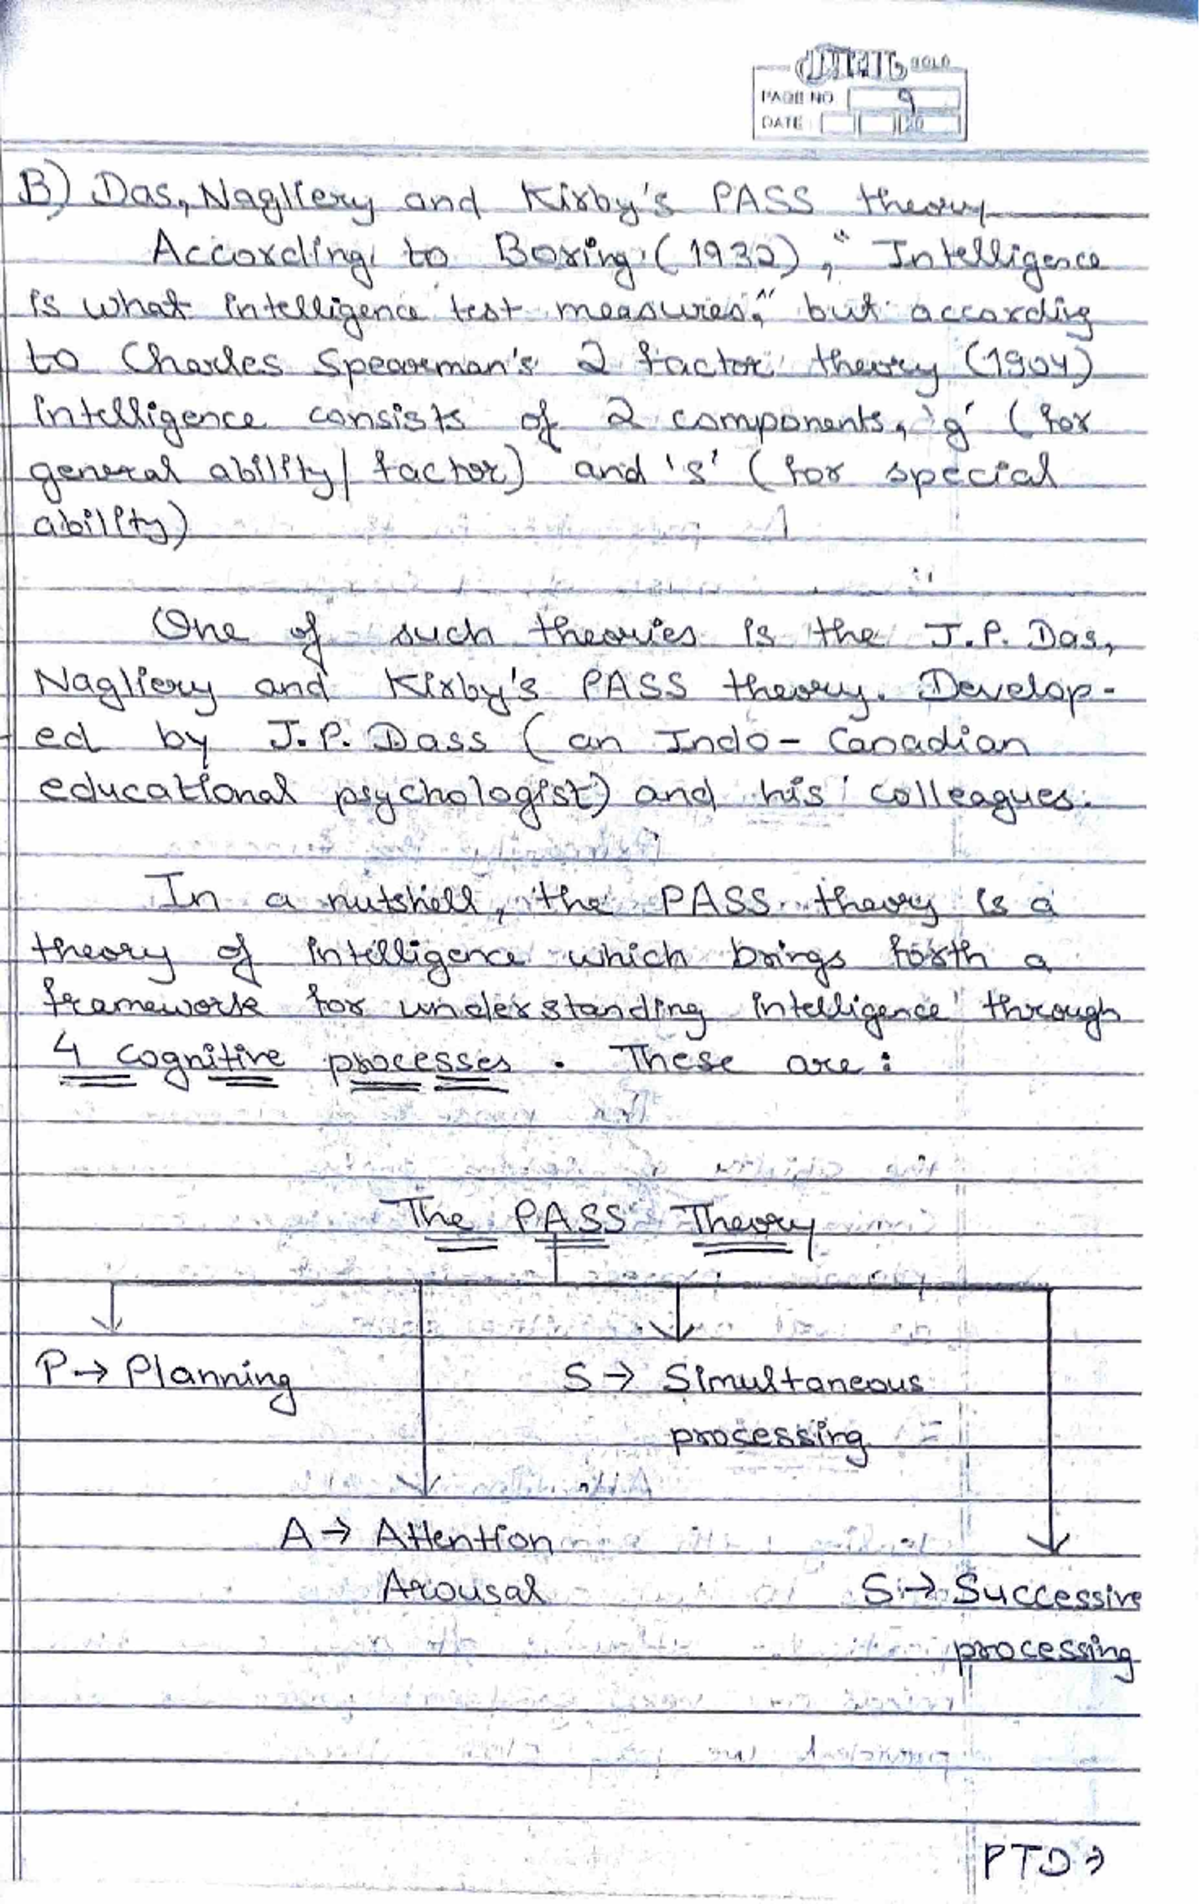 GOLD
PAGE NO 9
DATE 20
B) Das, Nagliery and Kirby's PASS theory
According to Boring (1932), "Intelligence
is what intelligence test measures," but according
to Charles Spearman's 2 factor theory (1904)
intelligence consists of 2 components, 'g' (for
general ability/factor) and 's' (for special
ability)
One of such theories is the J.P. Das,
Nagliery and Kirby's PASS theory. Develop-
ed by J.P. Dass (an Indo-Canadian
educational psychologist) and his colleagues.
In a nutshell, the PASS theory is a
theory of intelligence which brings forth a
framework for understanding intelligence through
4 cognitive processes. These are:
The PASS Theory
P→ Planning
S→ Simultaneous
processing
A→ Attention
Arousal
S→ Successive
processing
PTO→